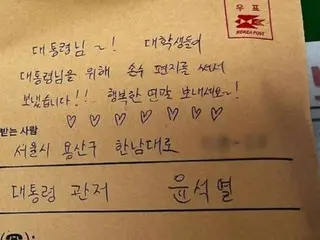 우표
KOREA POST
대통령님~! 대학생들이
대통령님을 위해 손수 편지를 써서
보냈습니다!! 행복한 연말 보내세요~!
♡ ♡ ♡ ♡ ♡ ♡ ♡
받는 사람
서울시 용산구 한남대로
대통령 관저 윤석열